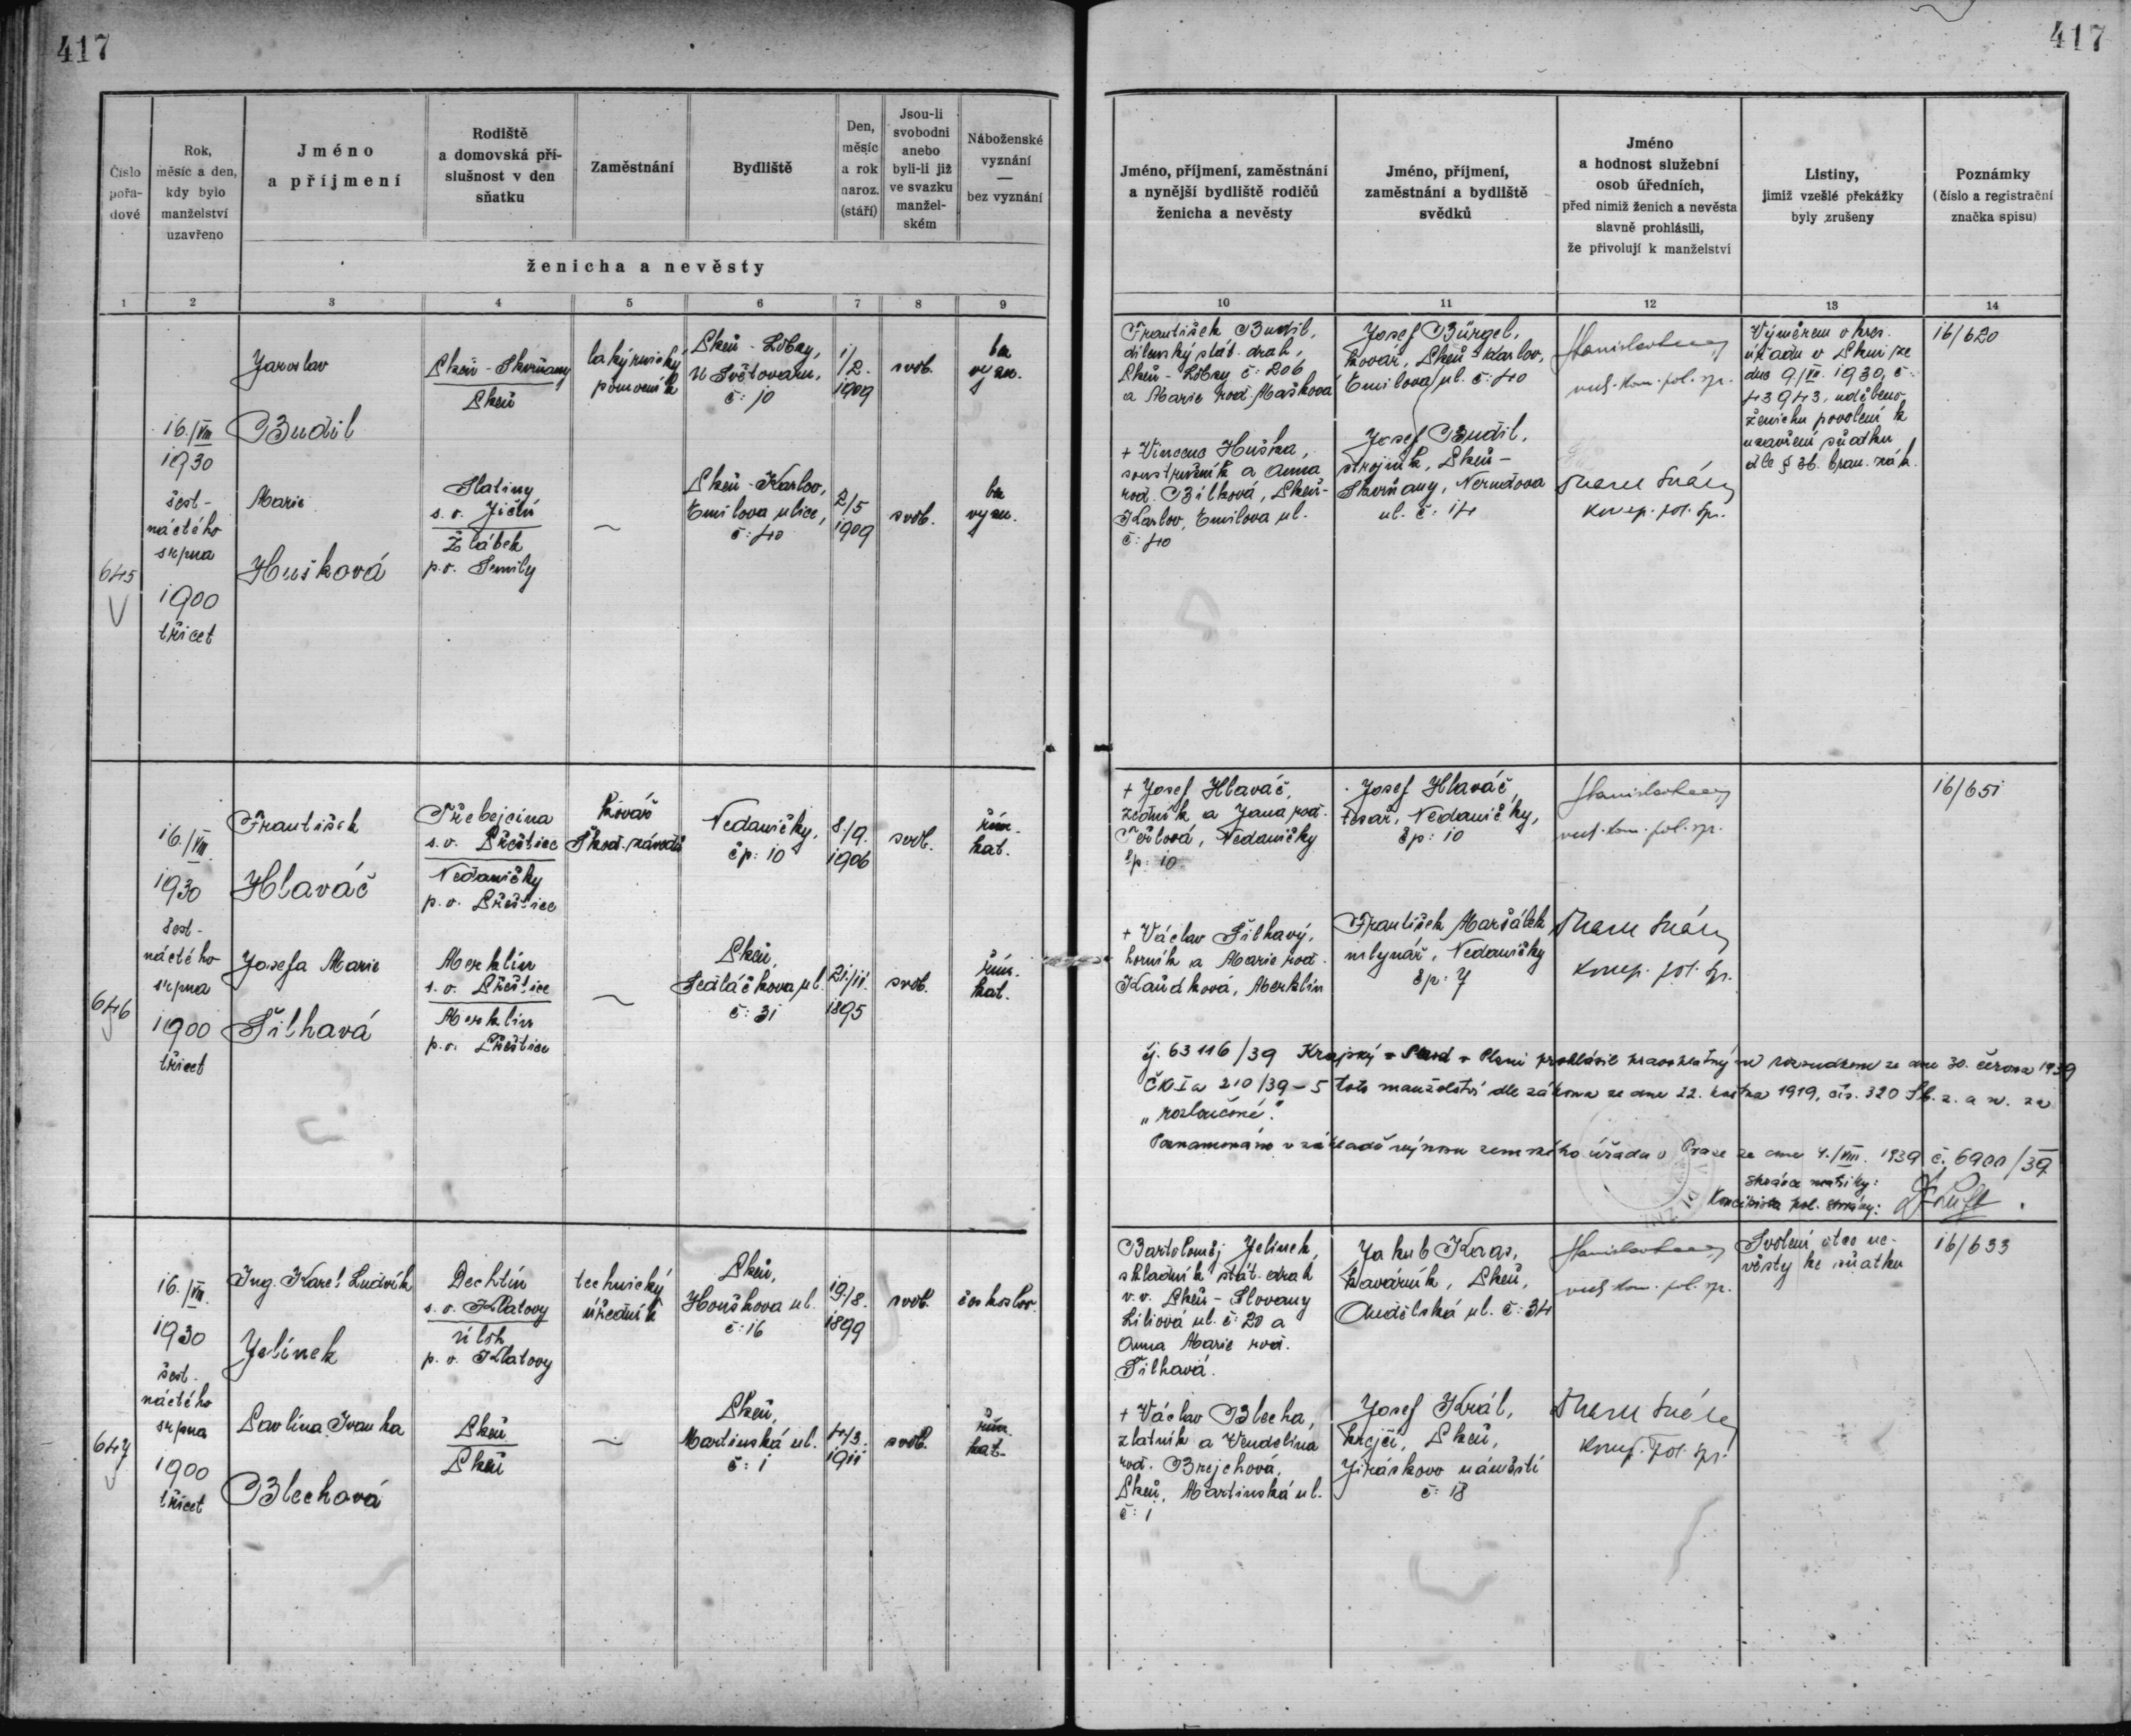 417
417
Číslo pořa-dové
Rok, měsíc a den, kdy bylo manželství uzavřeno
Jméno a příjmení
Rodiště a domovská pří-slušnost v den sňatku
Zaměstnání
Bydliště
Den, měsíc a rok naroz. (stáří)
Jsou-li svobodni anebo byli-li již ve svazku manžel-ském
Náboženské vyznání — bez vyznání
ženicha a nevěsty
Jméno, příjmení, zaměstnání a nynější bydliště rodičů ženicha a nevěsty
Jméno, příjmení, zaměstnání a bydliště svědků
Jméno a hodnost služební osob úředních, před nimiž ženich a nevěsta slavně prohlásili, že přivolují k manželství
Listiny, jimiž vzešlé překážky byly zrušeny
Poznámky (číslo a registrační značka spisu)
1 2 3 4 5 6 7 8 9 10 11 12 13 14
645
16./VIII
1930
šest-
náctého
srpna
1900
třicet
Jaroslav
Budil
Plzeň - Skvrňany
Plzeň
lakýrnický
pomocník
Plzeň - Lobzy,
U Světovaru,
č: 10
1/2.
1909
svob.
bez
vyzn.
Marie
Hušková
Slatiny
s. o. Jičín
Žlábek
p. o. Semily
~
Plzeň - Karlov,
Emilova ulice,
č: 40
2/5
1909
svob.
bez
vyzn.
František Budil,
dílenský stát. drah,
Plzeň - Lobzy č: 206
a Marie rod. Mašková
+ Vincenc Huška,
soustružník a Anna
rod. Bílková, Plzeň-
Karlov, Emilova ul.
č: 40
Josef Bürgel,
kovář, Plzeň - Karlov,
Emilova ul. č: 40
Josef Budil,
strojník, Plzeň -
Skvrňany, Nerudova
ul. č: 14
pol. spr.
pol. spr.
Výměrem okres.
úřadu v Plzni ze
dne 9./VII. 1930, č:
43943, uděleno
ženichu povolení k
uzavření sňatku
dle § 36. bran. zák.
16/620
646
16./VIII.
1930
šest-
náctého
srpna
1900
třicet
František
Hlaváč
Třebejcina
s. o. Přeštice
Nedaničky
p. o. Přeštice
kovář
Škod. závodů
Nedaničky,
čp: 10
8./9.
1906
svob.
řím.
kat.
Josefa Marie
Šilhavá
Merklín
s. o. Přeštice
Merklín
p. o. Přeštice
~
Plzeň,
Sedláčkova ul.
č: 31
21/11.
1895
svob.
řím.
kat.
+ Josef Hlaváč,
zedník a Jana rod.
Nedaničky
čp: 10
+ Václav Šilhavý,
horník a Marie rod.
Kaňáková, Merklín
Josef Hlaváč,
tesař, Nedaničky,
čp: 10
František Maršálek
mlynář, Nedaničky
čp: 7
pol. spr.
pol. spr.
16/651
čj. 63116/39 Krajský soud v Plzni prohlásil pravoplatným rozsudkem ze dne 30. června 1939
Čk I a 210/39 - 5 toto manželství dle zákona ze dne 22. května 1919, čís. 320 Sb. z. a n. za
"rozloučené".
Poznamenáno v základě výnosu zemského úřadu v Praze ze dne 4./VIII. 1939 č. 6900/39
Správce matriky:
Koncipista pol. správy:
647
16./VIII.
1930
šest-
náctého
srpna
1900
třicet
Ing. Karel Ludvík
Jelínek
Dechtín
s. o. Klatovy
p. o. Klatovy
technický
úředník
Plzeň,
Houškova ul.
č: 16
19./8.
1899
svob.
českoslov.
Pavlína Ivanka
Blechová
Plzeň
Plzeň
~
Plzeň,
Martinská ul.
č: 1
4/3.
1911
svob.
řím.
kat.
Bartoloměj Jelínek,
skladník stát. drah
v. v. Plzeň - Slovany
Liliová ul. č: 20 a
Anna Marie rod.
Šilhavá.
+ Václav Blecha,
zlatník a Vendelína
rod. Brejchová,
Plzeň, Martinská ul.
č: 1
Jakub Kraas,
kavárník, Plzeň,
Andělská ul. č: 34
Josef Král,
krejčí, Plzeň,
Jiráskovo náměstí
č: 18
pol. spr.
pol. spr.
Svolení otce ne-
věsty ke sňatku
16/633